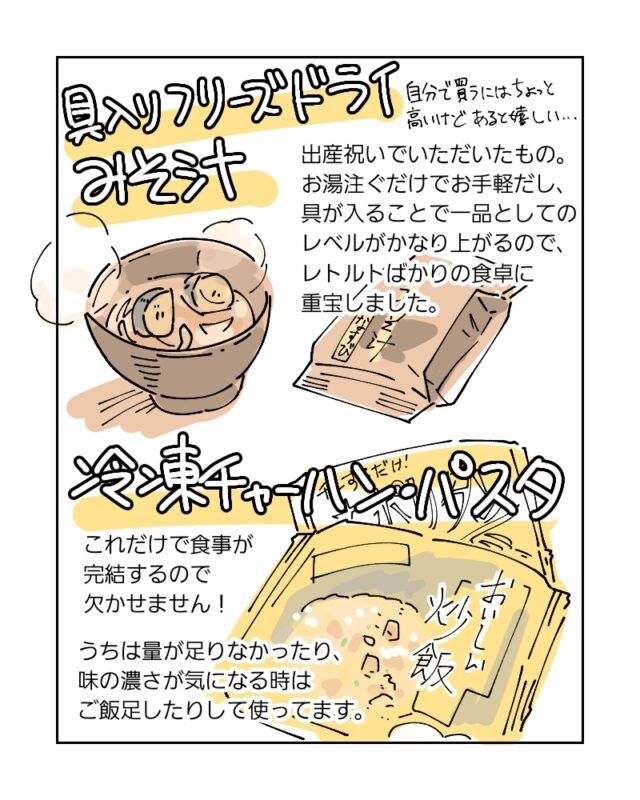 具入りフリーズドライ
みそ汁
自分で買うにはちょっと
高いけど あると嬉しい…
出産祝いでいただいたもの。
お湯注ぐだけでお手軽だし、
具が入ることで一品としての
レベルがかなり上がるので、
レトルトばかりの食卓に
重宝しました。
冷凍チャーハン・パスタ
これだけで食事が
完結するので
欠かせません！
おいしい
炒飯
うちは量が足りなかったり、
味の濃さが気になる時は
ご飯足したりして使ってます。